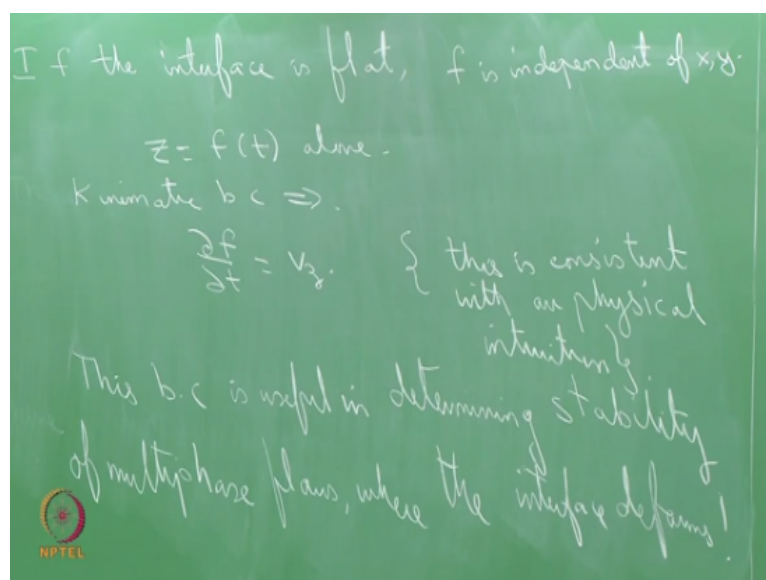 If the interface is flat, f is independent of x, y.
z = f(t) alone.
Kinematic b c ⇒.
∂f/∂t = v_z. { this is consistent
with our physical
intuition }
This b.c is useful in determining stability
of multiphase flows, where the interface deforms!
NPTEL